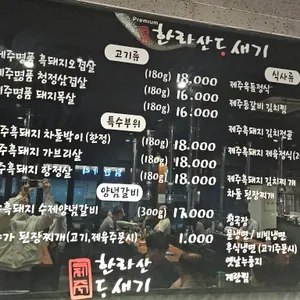 Premium
한라산두새기
고기류
제주명품 흑돼지오겹살 (180g) 18.000
제주명품 청정삼겹살 (180g) 16.000
제주명품 돼지목살 (180g) 16.000
특수부위
제주흑돼지 차돌박이 (한정) (180g) 18.000
제주흑돼지 가브리살 (180g) 18.000
제주흑돼지 항정살 (180g) 18.000
양념갈비
제주흑돼지 수제양념갈비 (300g) 17.000
추가 된장찌개(고기,제육주문시) 1.000
식사류
제주옥돔정식
제주등갈비 김치찜
제주흑돼지 김치전골
제주흑돼지 제육정식
제주흑돼지 김치찌개
차돌 된장찌개
청국장
물냉면 / 비빔냉면
후식냉면 (고기주문시)
옛날누룽지
계란찜
제주
한라산
두새기